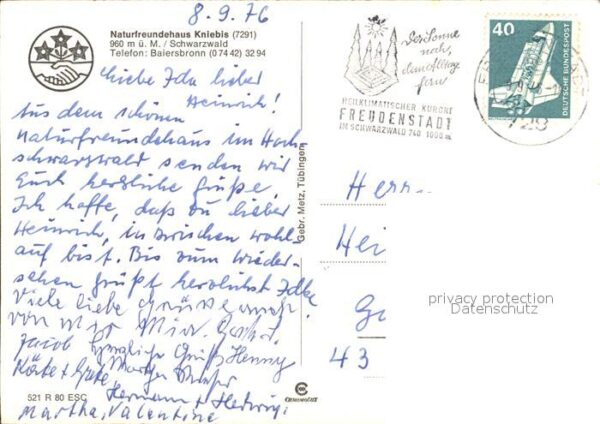 8.9.76
Naturfreundehaus Kniebis (7291)
960 m ü. M. / Schwarzwald
Telefon: Baiersbronn (0 74 42) 32 94
Liebe Ida lieber
Heinrich!
Aus dem schönen
Naturfreundehaus im Hoch
schwarzwald senden wir
Euch herzliche Grüße.
Ich hoffe, daß du lieber
Heinrich, inzwischen wohl
auf bist. Bis zum Wieder-
sehen grüßt herzlichst
Viele liebe Grüße
von
Jacob Herzliche Grüße Henny
Käte +
Hermann + Hedwig
Martha, Valentine
521 R 80 ESC
Gebr. Metz, Tübingen
Der Sonne
nah,
dem Alltag
fern
HEILKLIMATISCHER KURORT
FREUDENSTADT
IM SCHWARZWALD 740-1000 m
40
DEUTSCHE BUNDESPOST
Herr
Hei
43
privacy protection
Datenschutz